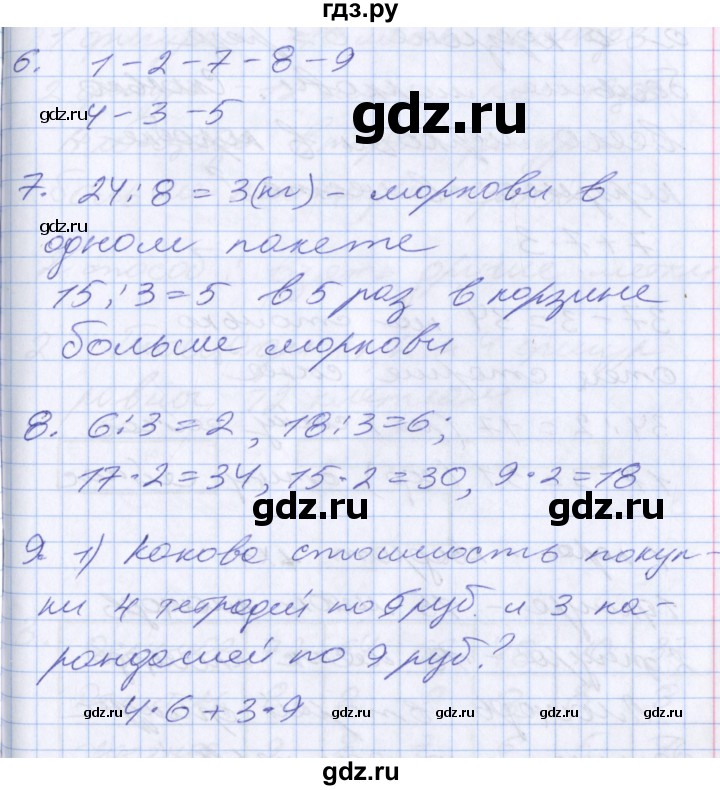 гдз.ру
6. 1-2-7-8-9
gdz.ru 4-3-5
gdz.ru
7. 24:8=3(кг) - моркови в
gdz.ru
одном пакете
15:3=5 в 5 раз в корзине
больше моркови
8. 6:3=2, 18:3=6;
17·2=34, 15·2=30, 9·2=18
gdz.ru gdz.ru
9. 1) Какова стоимость покуп-
ки 4 тетрадей по 6 руб. и 3 ка-
рандашей по 9 руб.?
4·6+3·9
gdz.ru gdz.ru gdz.ru gdz.ru gdz.ru
gdz.ru